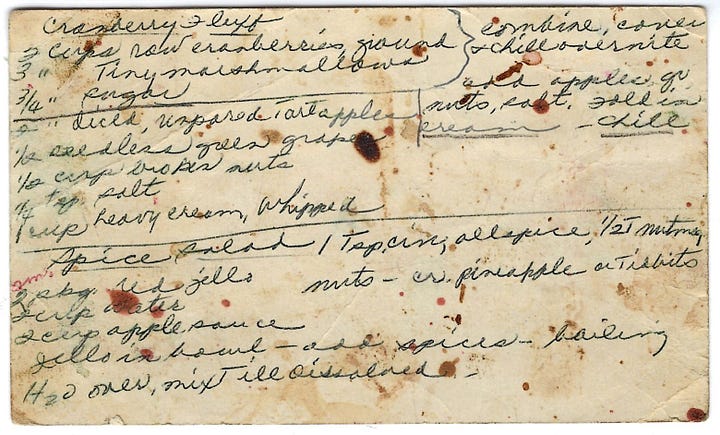 Cranberry Fluff
2 cups raw cranberries, ground
3 " Tiny marshmallows
3/4 " sugar
combine, cover
& chill overnite
2 " diced, unpared Tart apples
1/2 seedless green grapes
1/2 cup broken nuts
1/4 tsp salt
1 cup heavy cream, Whipped
add apples, gr,
nuts, salt. Fold in
cream - chill
Spice salad 1 Tsp, cin, allspice, 1/2 T nutmeg
2 pkg. red jello nuts - cr. pineapple or Tidbits
2 cup water
2 cup apple sauce
Jello in bowl - add spices - boiling
H2O over, mix till dissolved -